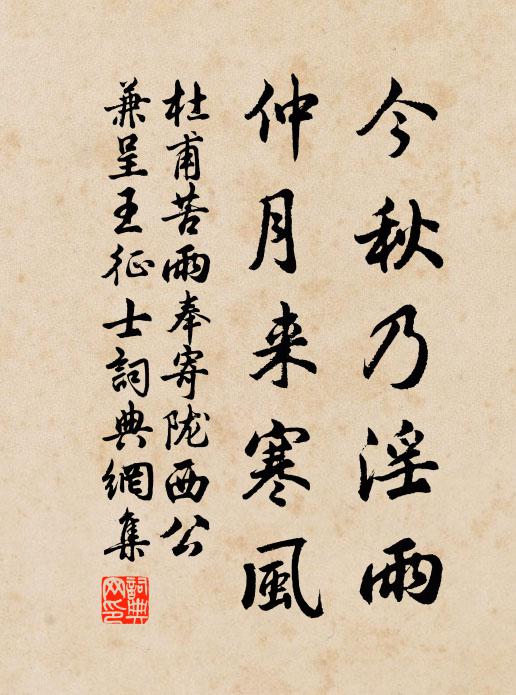 今秋乃淫雨
仲月来寒風
杜甫苦雨奉寄陇西公
兼呈王征士詞典網集
詞典网印